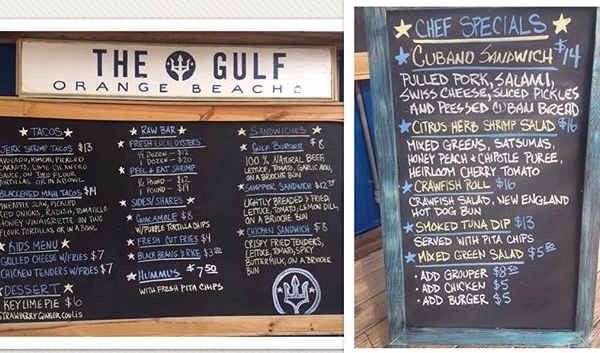 THE GULF
ORANGE BEACH
★ TACOS ★
JERK SHRIMP TACOS $13
AVOCADO, KIMCHI, PICKLED
CARROTS, LIME CILANTRO
SAUCE, ON TWO FLOUR
TORTILLAS OR IN A BOWL
BLACKENED MAHI TACOS $14
PINEAPPLE SLAW, PICKLED
RED ONIONS, RADISH, TOMATILLO
HONEY VINAIGRETTE ON TWO
FLOUR TORTILLAS OR IN A BOWL
★ KIDS MENU ★
GRILLED CHEESE W/FRIES $7
CHICKEN TENDERS W/FRIES $7
★ DESSERT ★
KEY LIME PIE $6
STRAWBERRY GINGER COULIS
★ RAW BAR ★
★ FRESH LOCAL OYSTERS
1/2 DOZEN - $12
1 DOZEN - $20
★ PEEL + EAT SHRIMP
1/2 POUND - $12
1 POUND - $19
★ SIDES/SHARES ★
★ GUACAMOLE $8
W/PURPLE TORTILLA CHIPS
★ FRESH CUT FRIES $4
★ BLACK BEANS & RICE
★ HUMMUS ★ $7.50
WITH FRESH PITA CHIPS
★ SANDWICHES ★
GULF BURGER $8
100% NATURAL BEEF,
LETTUCE, TOMATO, GARLIC AIOLI,
ON A BRIOCHE BUN
SANDWICH
LIGHTLY BREADED & FRIED,
LETTUCE, TOMATO, LEMON DILL,
ON A BRIOCHE BUN
★ CHICKEN SANDWICH $8
CRISPY FRIED TENDERS,
LETTUCE, TOMATO, SPICY
BUTTERMILK, ON A BRIOCHE
BUN
★ CHEF SPECIALS ★
★ CUBANO SANDWICH $14
PULLED PORK, SALAMI,
SWISS CHEESE, SLICED PICKLES
AND PRESSED CUBAN BREAD
★ CITRUS HERB SHRIMP SALAD $16
MIXED GREENS, SATSUMAS,
HONEY PEACH & CHIPOTLE PUREE,
HEIRLOOM CHERRY TOMATO
★ CRAWFISH ROLL $16
CRAWFISH SALAD, NEW ENGLAND
HOT DOG BUN
★ SMOKED TUNA DIP $13
SERVED WITH PITA CHIPS
★ MIXED GREEN SALAD $5.50
• ADD GROUPER $8.50
• ADD CHICKEN $5
• ADD BURGER $5